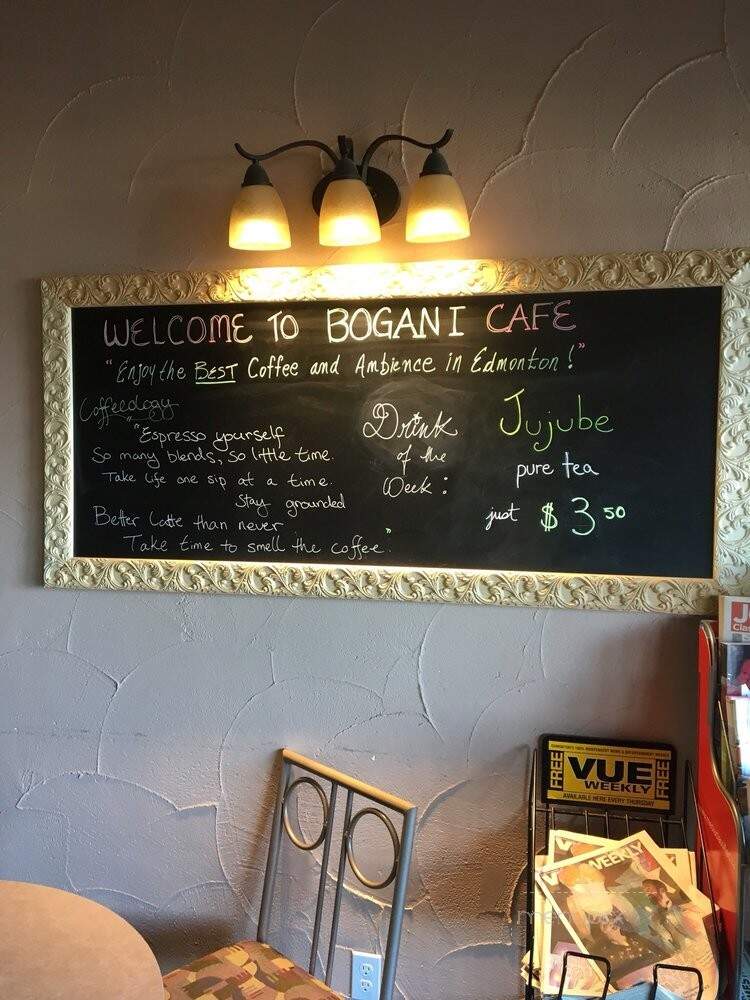 WELCOME TO BOGANI CAFE
"Enjoy the BEST Coffee and Ambience in Edmonton!"
Coffeeology
""Espresso yourself
So many blends, so little time.
Take life one sip at a time.
Stay grounded
Better Latte than never.
Take time to smell the coffee."
Drink
of the
Week:
Jujube
pure tea
just $3.50
FREE
VUE
WEEKLY
FREE
AVAILABLE HERE EVERY THURSDAY
WEEKLY